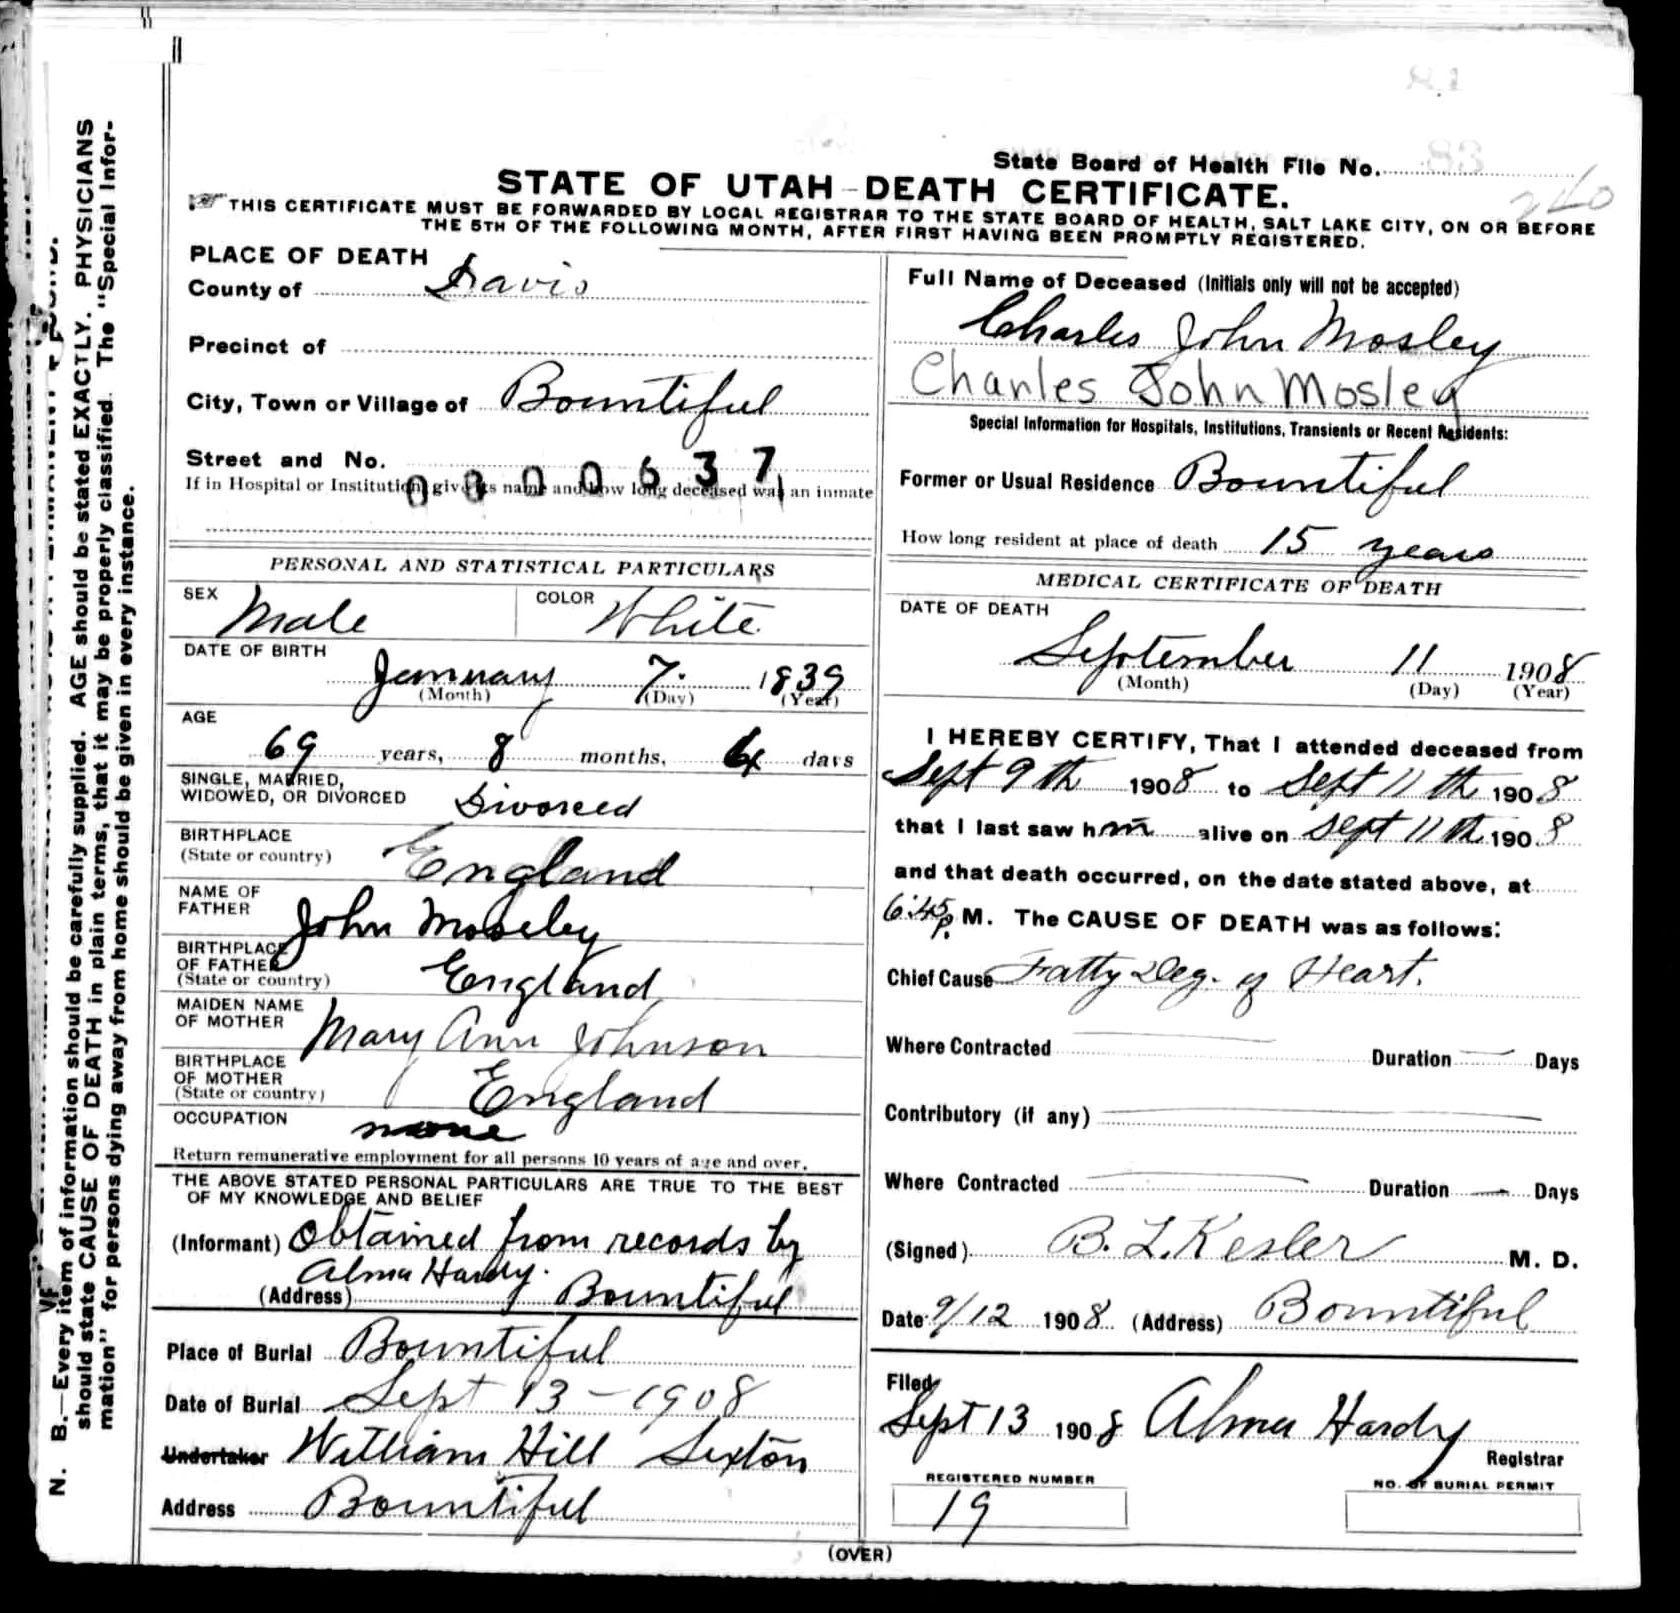 State Board of Health File No. 83
260
STATE OF UTAH - DEATH CERTIFICATE.
THIS CERTIFICATE MUST BE FORWARDED BY LOCAL REGISTRAR TO THE STATE BOARD OF HEALTH, SALT LAKE CITY, ON OR BEFORE
THE 5TH OF THE FOLLOWING MONTH, AFTER FIRST HAVING BEEN PROMPTLY REGISTERED.
PLACE OF DEATH
County of Davis
Precinct of
City, Town or Village of Bountiful
Street and No.
0000637
If in Hospital or Institution, give its name and how long deceased was an inmate
PERSONAL AND STATISTICAL PARTICULARS
SEX Male COLOR White
DATE OF BIRTH
January 7. 1839
(Month) (Day) (Year)
AGE
69 years, 8 months, 4 days
SINGLE, MARRIED,
WIDOWED, OR DIVORCED Divorced
BIRTHPLACE
(State or country) England
NAME OF
FATHER John Moseley
BIRTHPLACE
OF FATHER
(State or country) England
MAIDEN NAME
OF MOTHER Mary Ann Johnson
BIRTHPLACE
OF MOTHER
(State or country) England
OCCUPATION none
Return remunerative employment for all persons 10 years of age and over.
THE ABOVE STATED PERSONAL PARTICULARS ARE TRUE TO THE BEST
OF MY KNOWLEDGE AND BELIEF
(Informant) Obtained from records by
Alma Hardy.
(Address) Bountiful
Place of Burial Bountiful
Date of Burial Sept 13 - 1908
Undertaker William Hill Sexton
Address Bountiful
Full Name of Deceased (Initials only will not be accepted)
Charles John Mosley
Charles John Mosley
Special Information for Hospitals, Institutions, Transients or Recent Residents:
Former or Usual Residence Bountiful
How long resident at place of death 15 years
MEDICAL CERTIFICATE OF DEATH
DATE OF DEATH
September 11 1908
(Month) (Day) (Year)
I HEREBY CERTIFY, That I attended deceased from
Sept 9th 1908 to Sept 11th 1908
that I last saw him alive on Sept 11th 1908
and that death occurred, on the date stated above, at
6:45 P. M. The CAUSE OF DEATH was as follows:
Chief Cause Fatty Deg. of Heart.
Where Contracted Duration Days
Contributory (if any)
Where Contracted Duration Days
(Signed) B. L. Kesler M. D.
Date 9/12 1908 (Address) Bountiful
Filed
Sept 13 1908 Alma Hardy
Registrar
REGISTERED NUMBER
19
NO. OF BURIAL PERMIT
(OVER)
N. B.—Every item of information should be carefully supplied. AGE should be stated EXACTLY. PHYSICIANS
should state CAUSE OF DEATH in plain terms, that it may be properly classified. The "Special Infor-
mation" for persons dying away from home should be given in every instance.